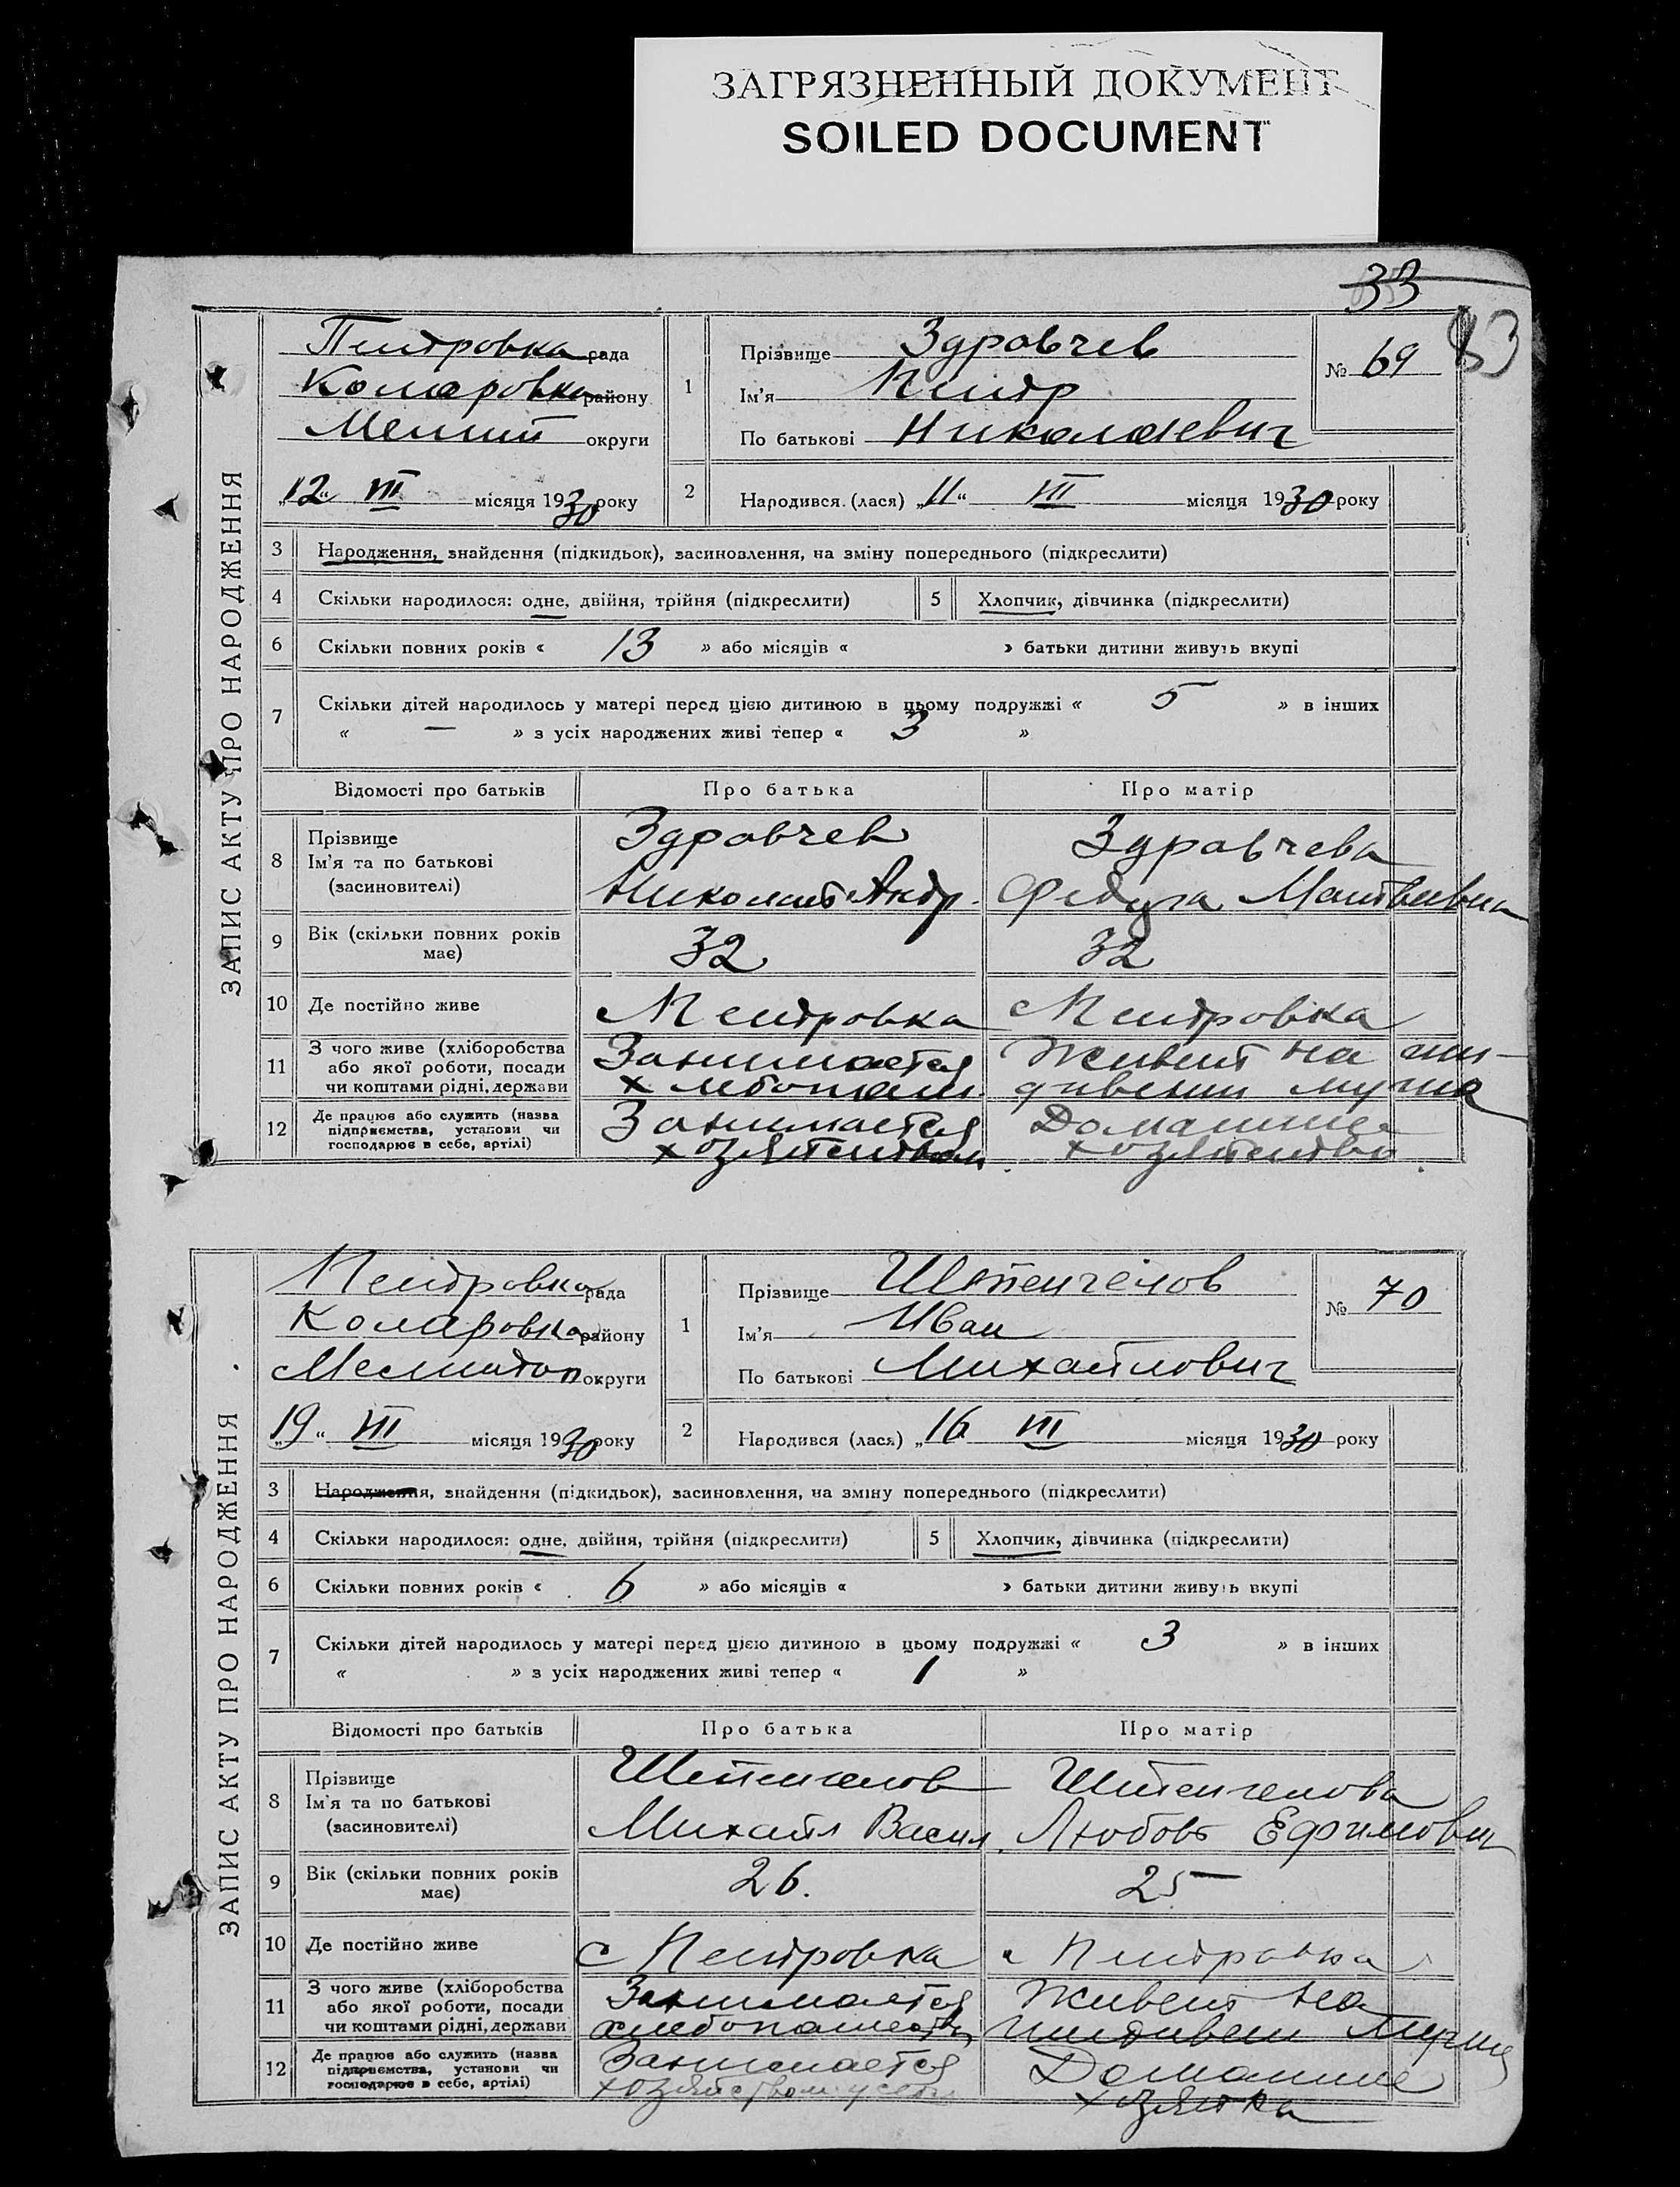 ЗАГРЯЗНЕННЫЙ ДОКУМЕНТ
SOILED DOCUMENT
33
83
ЗАПИС АКТУ ПРО НАРОДЖЕННЯ
Петровка рада
Коларовка району
округи
„12“ VIII місяця 1930 року
1
Прізвище Здравчев
Ім'я Петр
По батькові Николаевич
№ 69
2
Народився (лася) „11“ VIII місяця 1930 року
3 Народження, знайдення (підкидьок), засиновлення, на зміну попереднього (підкреслити)
4 Скільки народилося: одне, двійня, трійня (підкреслити) 5 Хлопчик, дівчинка (підкреслити)
6 Скільки повних років « 13 » або місяців « » батьки дитини живуть вкупі
7 Скільки дітей народилось у матері перед цією дитиною в цьому подружжі « 5 » в інших
« — » з усіх народжених живі тепер « 3 »
Відомості про батьків Про батька Про матір
8 Прізвище
Ім'я та по батькові
(засиновителі)
Здравчев
Николай Андр.
Здравчева
Матвеевна
9 Вік (скільки повних років
має)
32
32
10 Де постійно живе
Петровка
Петровка
11 З чого живе (хліборобства
або якої роботи, посади
чи коштами рідні, держави
Занимается
хлебопаш.
Живет на иж-
дивении мужа
12 Де працює або служить (назва
підприємства, установи чи
господарює в себе, артілі)
Занимается
хозяйством
Домашнее
хозяйство
ЗАПИС АКТУ ПРО НАРОДЖЕННЯ
Петровка рада
Коларовка району
Мелитоп округи
„19“ VIII місяця 1930 року
1
Прізвище Штенгелов
Ім'я Иван
По батькові Михайлович
№ 70
2
Народився (лася) „16 VIII місяця 1930 року
3 Народження, знайдення (підкидьок), засиновлення, на зміну попереднього (підкреслити)
4 Скільки народилося: одне, двійня, трійня (підкреслити) 5 Хлопчик, дівчинка (підкреслити)
6 Скільки повних років « 6 » або місяців « » батьки дитини живуть вкупі
7 Скільки дітей народилось у матері перед цією дитиною в цьому подружжі « 3 » в інших
« » з усіх народжених живі тепер « 1 »
Відомості про батьків Про батька Про матір
8 Прізвище
Ім'я та по батькові
(засиновителі)
Штенгелов
Михаил Васил.
Штенгелова
Любовь Ефимовн
9 Вік (скільки повних років
має)
26.
25
10 Де постійно живе
с Петровка
с Петровка
11 З чого живе (хліборобства
або якої роботи, посади
чи коштами рідні, держави
Занимается
Живет на
12 Де працює або служить (назва
підприємства, установи чи
господарює в себе, артілі)
Занимается
хозяйством
Домашне
хозяйка